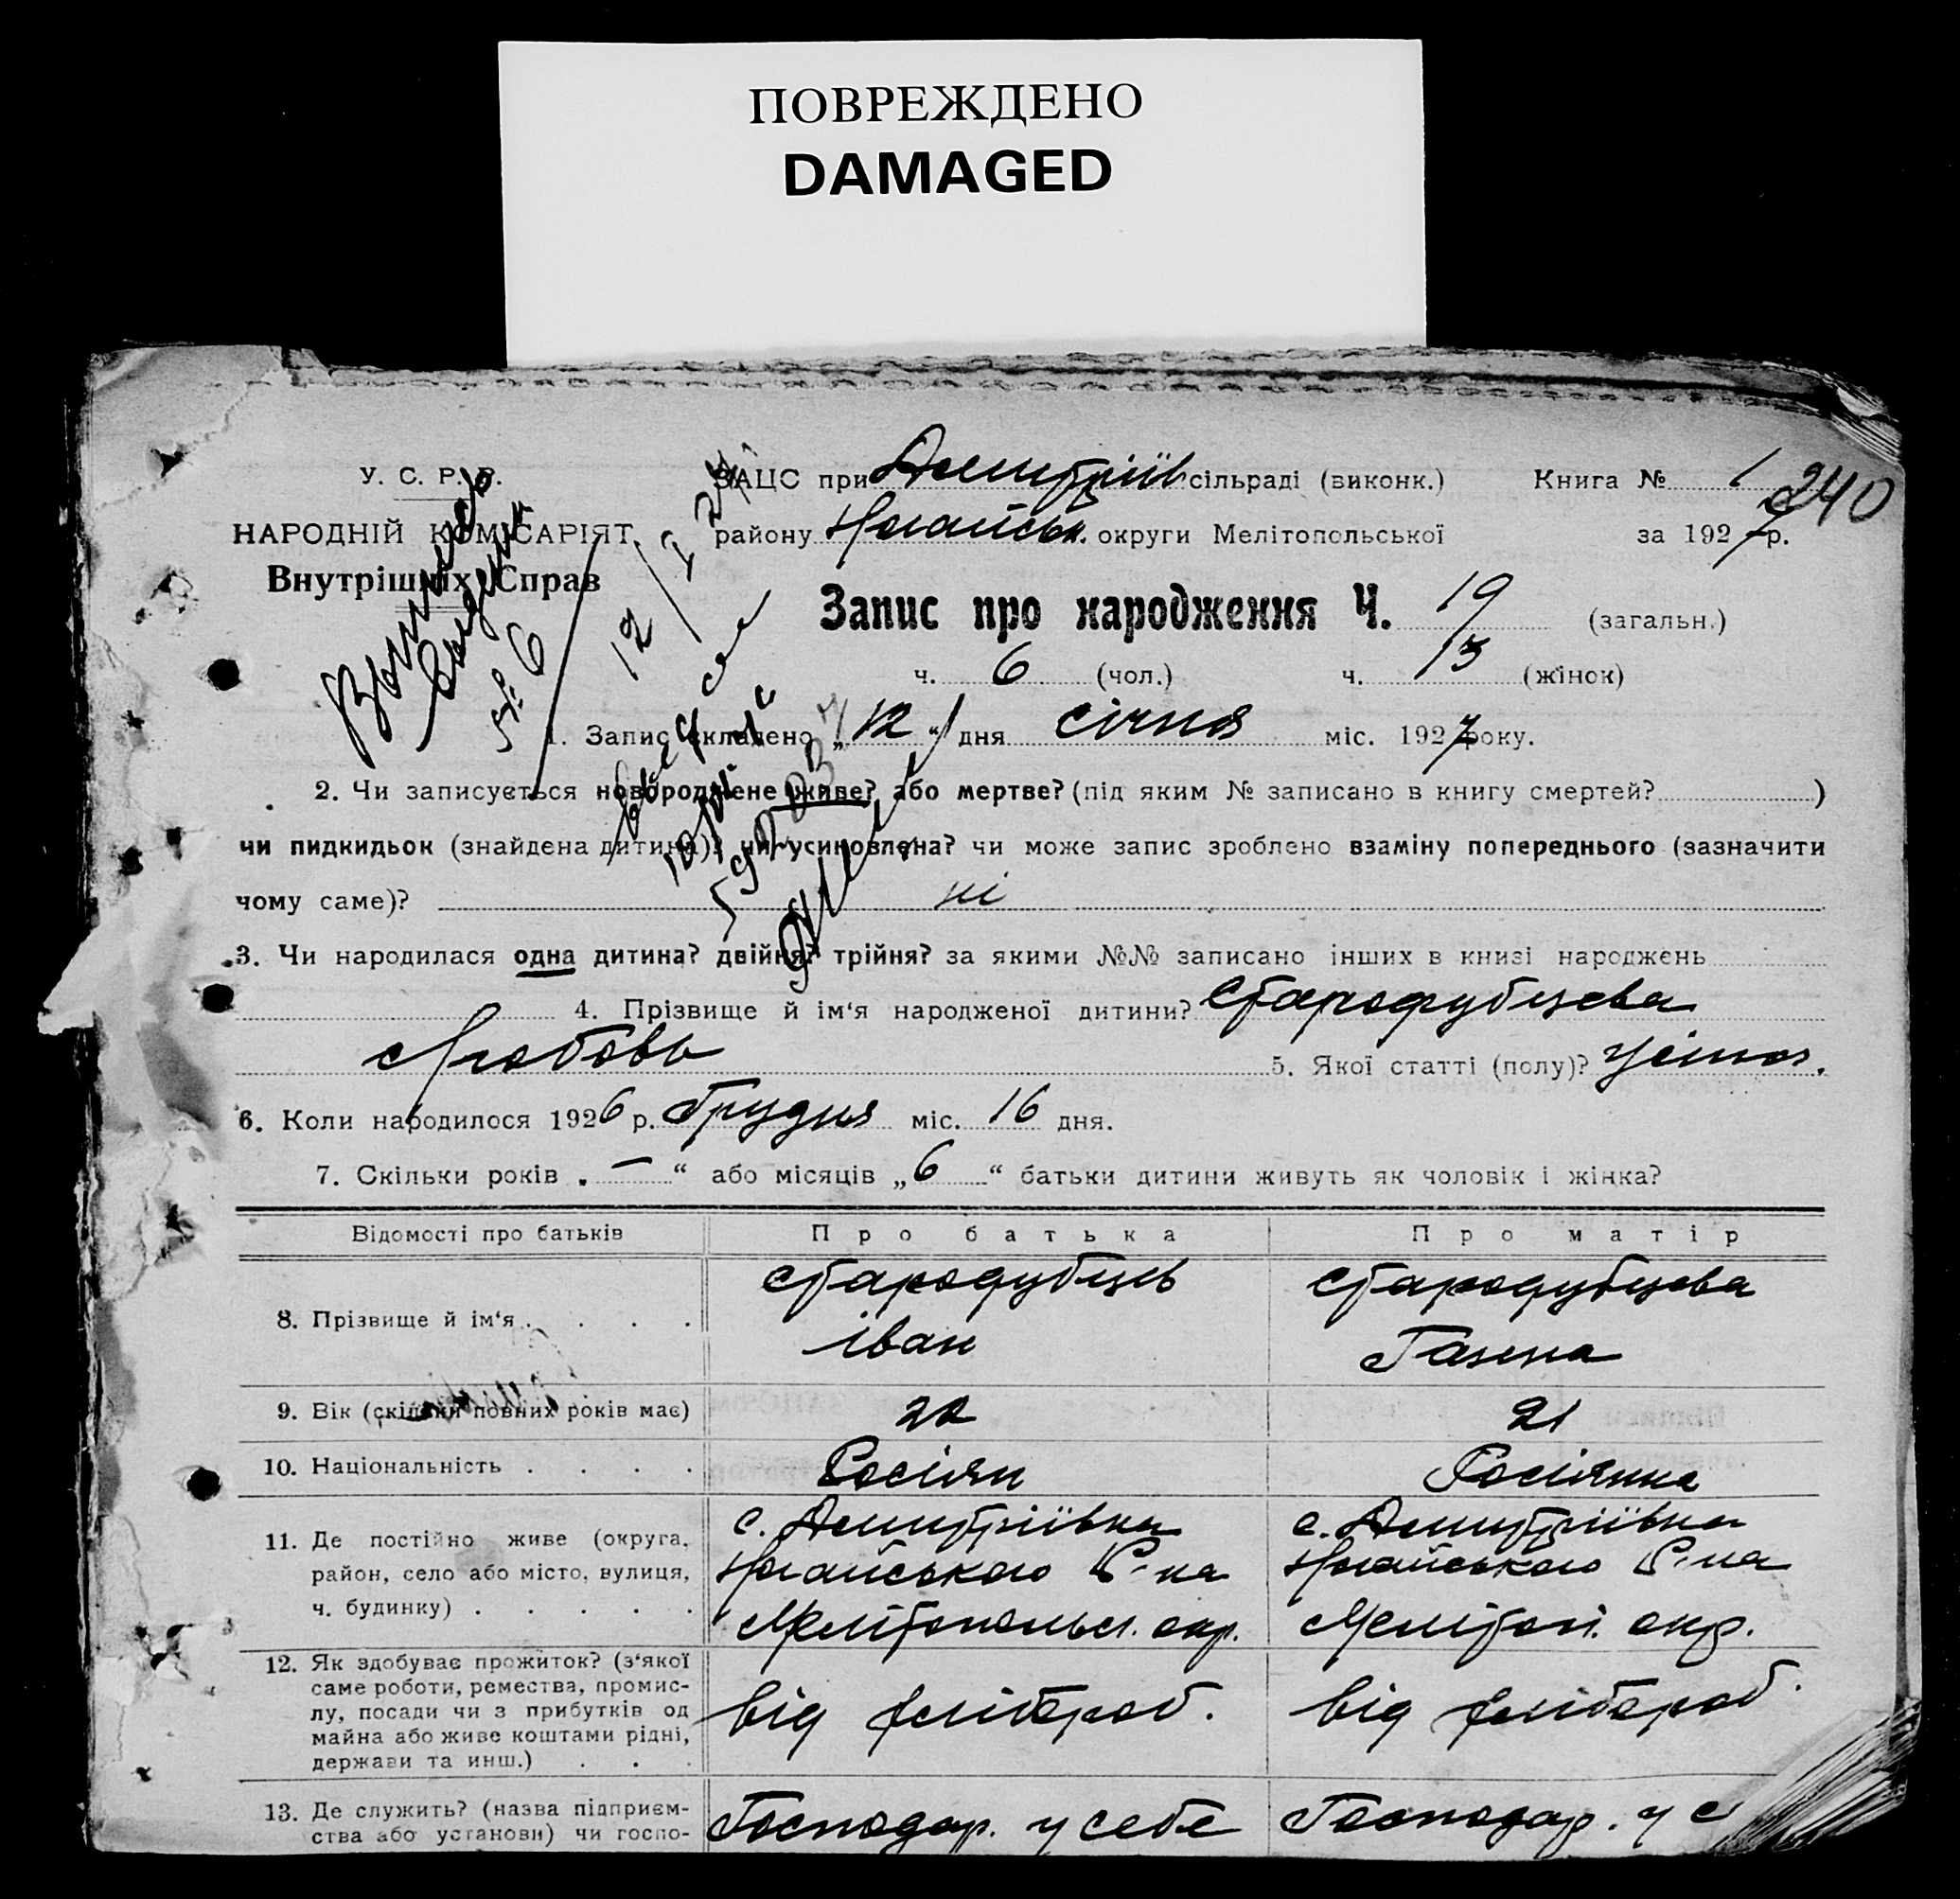 ПОВРЕЖДЕНО
DAMAGED
У. С. Р. Р.
НАРОДНІЙ КОМІСАРІЯТ
Внутрішніх Справ
ЗАЦС при Дмитріїв сільраді (виконк.)
Книга № 1
240
району Ногайськ. округи Мелітопольської
за 1927 р.
Запис про народження Ч. 19 (загальн.)
ч. 6 (чол.) ч. 13 (жінок)
№ 6
12/I 27
1. Запис складено „12“ дня січня міс. 1927 року.
2. Чи записується новороджене живе? або мертве? (під яким № записано в книгу смертей? )
чи пидкидьок (знайдена дитина)? чи усиновлена? чи може запис зроблено взаміну попереднього (зазначити
чому саме)? ні
3. Чи народилася одна дитина? двійня? трійня? за якими №№ записано інших в книзі народжень
4. Прізвище й ім‘я народженої дитини? Стародубцева
Любовь 5. Якої статті (полу)? жіноч.
6. Коли народилося 1926 р. Грудня міс. 16 дня.
7. Скільки років „—“ або місяців „6“ батьки дитини живуть як чоловік і жінка?
Відомості про батьків Про батька Про матір
8. Прізвище й ім‘я Стародубцев Стародубцева
Іван Галена
9. Вік (скільки повних років має) 22 21
10. Національність Росіян Росіянка
11. Де постійно живе (округа, с. Дмитріївка с. Дмитріївка
район, село або місто, вулиця, Ногайського Р-на Ногайського Р-на
ч. будинку) Мелітопольск. окр. Мелітоп. окр.
12. Як здобуває прожиток? (з‘якої
саме роботи, ремества, промис-
лу, посади чи з прибутків од від хлібороб. від хлібороб.
майна або живе коштами рідні,
держави та инш.)
13. Де служить? (назва підприєм- Господар. у себе Господар. у с
ства або установи) чи госпо-